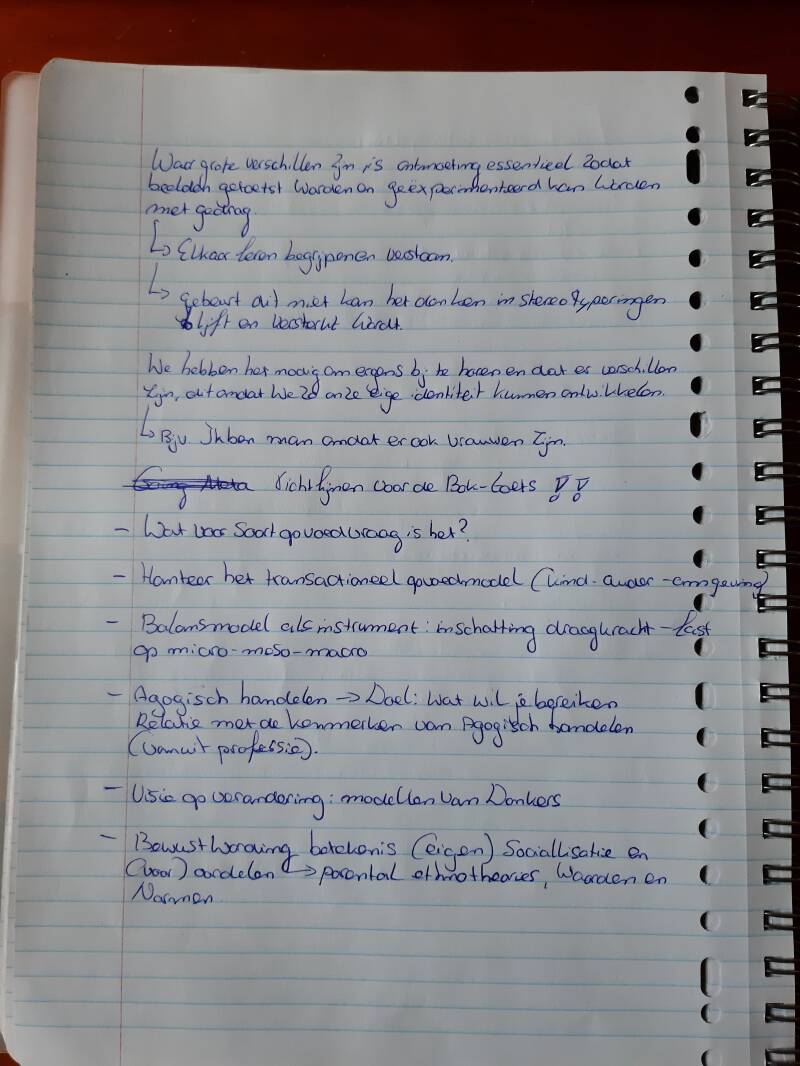 Waar grote verschillen zijn, is ontmoeting essentieel zodat
beelden getoetst worden en geëxperimenteerd kan worden
met gedrag.
↳ Elkaar leren begrijpen en verstaan.
↳ gebeurt dit niet kan het denken in stereotyperingen
blijft en versterkt wordt.
We hebben het nodig om ergens bij te horen en dat er verschillen
zijn, dit omdat we zo onze eige identiteit kunnen ontwikkelen.
↳ Bijv. Ik ben man omdat er ook vrouwen zijn.
richtlijnen voor de Bok-toets !!
- Wat voor soort opvoedvraag is het?
- Hanteer het transactioneel opvoedmodel (kind-ouder-omgeving)
- Balansmodel als instrument: inschatting draagkracht-last
op micro-meso-macro
- Agogisch handelen → Doel: wat wil je bereiken
Relatie met de kenmerken van Agogisch handelen
(vanuit professie).
- Visie op verandering: modellen van Donkers
- Bewustwording betekenis (eigen) Sociallisatie en
(voor)oordelen ↳ parental ethnotheories, Waarden en
Normen.